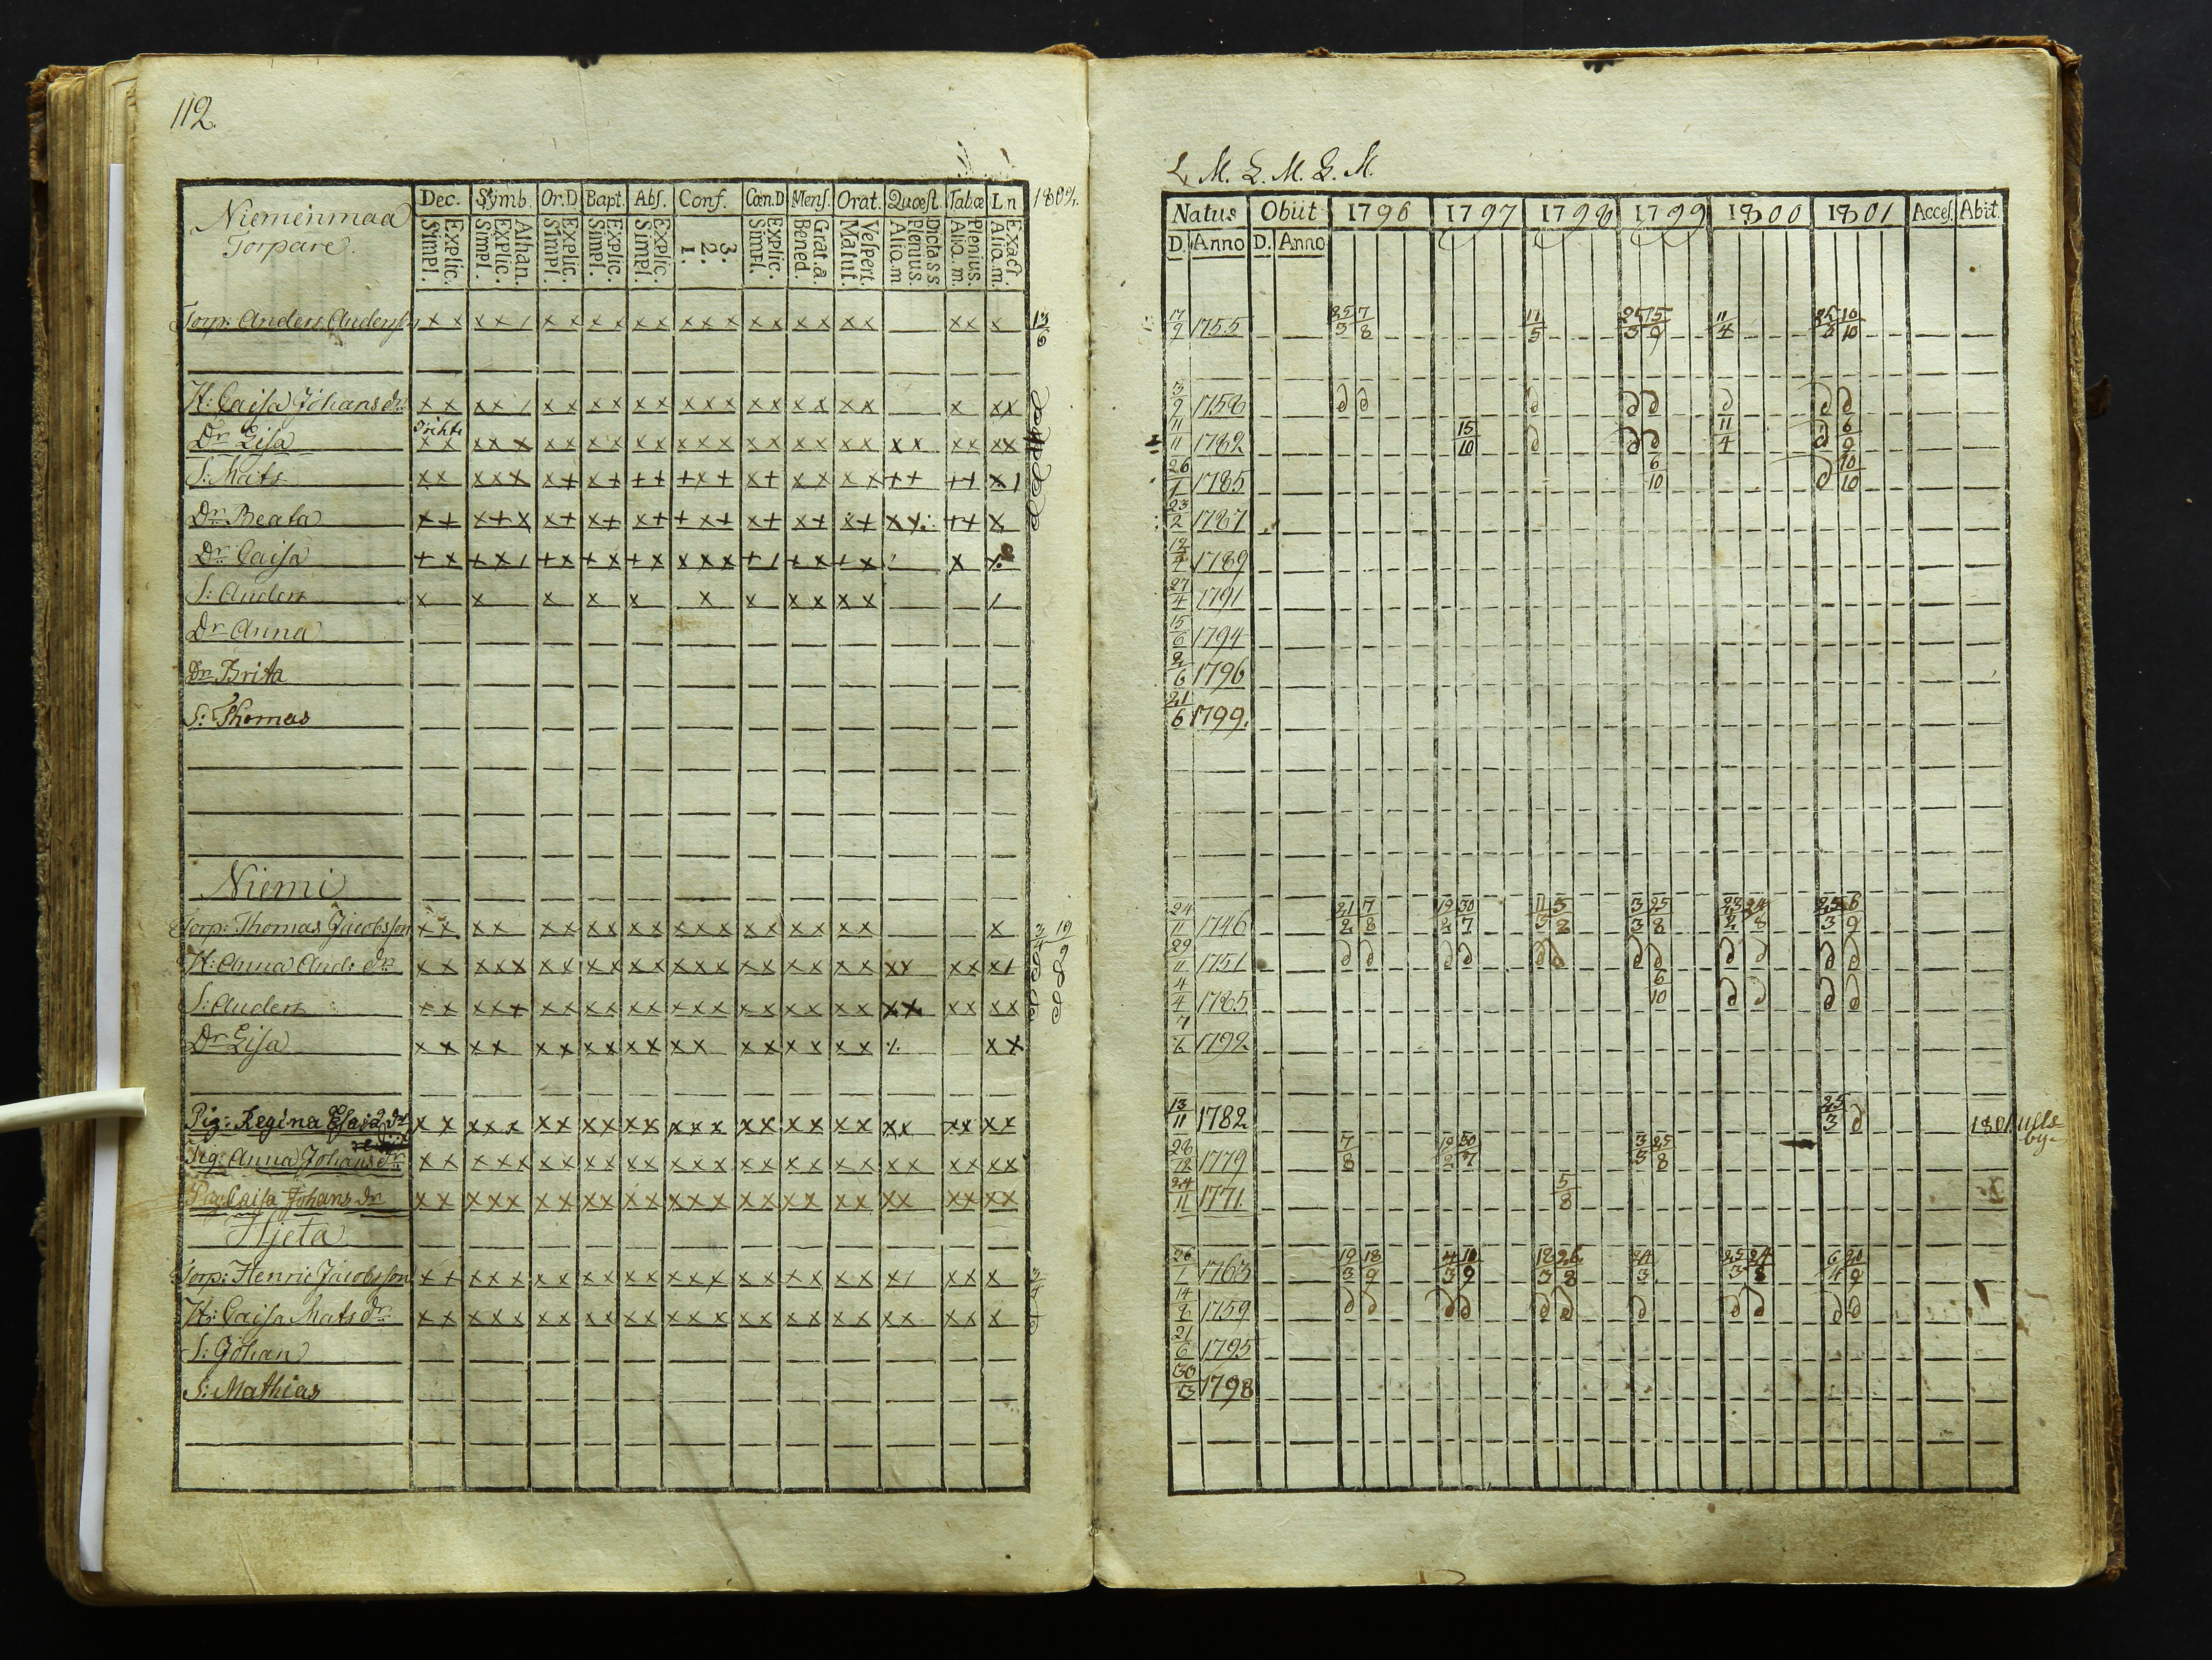 112.
Niemenmaa
Torpare.
Dec. Symb. Or.D Bapt. Abs. Conf. Cœn.D Mens. Orat. Quæst. Tab.æ L.n 1802.
Explic. Simpl. Athan. Explic. Simpl. Explic. Simpl. Explic. Simpl. Explic. Simpl. 3. 2. 1. Explic. Simpl. Grat.a. Bened. Vespert. Matut. Dicta.s.s Plenius. Aliq.m Plenius. Aliq.m. Exact. Aliq.m.
Torp: Anders Andersson
H: Caisa Johans dr.
Dr Lisa
S: Mats
Dr Beata
Dr Caisa
S: Anders
Dr Anna
Dr Brita
S: Thomas
Niemi
Torp: Thomas Jacobsson 3/4 19/9
H: Anna And: dr.
S: Anders
Dr Lisa
Pig: Regina Esaiæ dr
Pig: Anna Johans dr
Pig: Caisa Johans dr
Hjeta
Torp: Henric Jacobsson 3/4
H: Caisa Mats dr
S: Johan
S: Mathias
L. M. L. M. L. M.
Natus Obiit 1796 1797 1798 1799 1800 1801 Acces. Abit.
D. Anno D. Anno
17/9 1755 25/3 7/8 11/5 11/4 10/10
13/9 1758
11/11 1782 15/10 11/4 6/9
26/1 1785 6/10 10/10
23/2 1787
12/4 1789
27/4 1791
15/6 1794
2/6 1796
21/6 1799.
24/11 1746 21/2 7/8 12/2 30/7 11/3 5/8 3/3 25/8 23/2 24/8 25/3 6/9
29/11 1751
4/4 1785 6/10
7/6 1792
13/11 1782 25/3 1801
28/12 1779 7/8 12/2 30/7 3/3 25/8
24/11 1771. 5/8
26/1 1763 19/3 18/9 4/3 10/9 18/3 26/8 24/3 25/3 24/8 6/4 20/9
14/8 1759
21/6 1795
1798